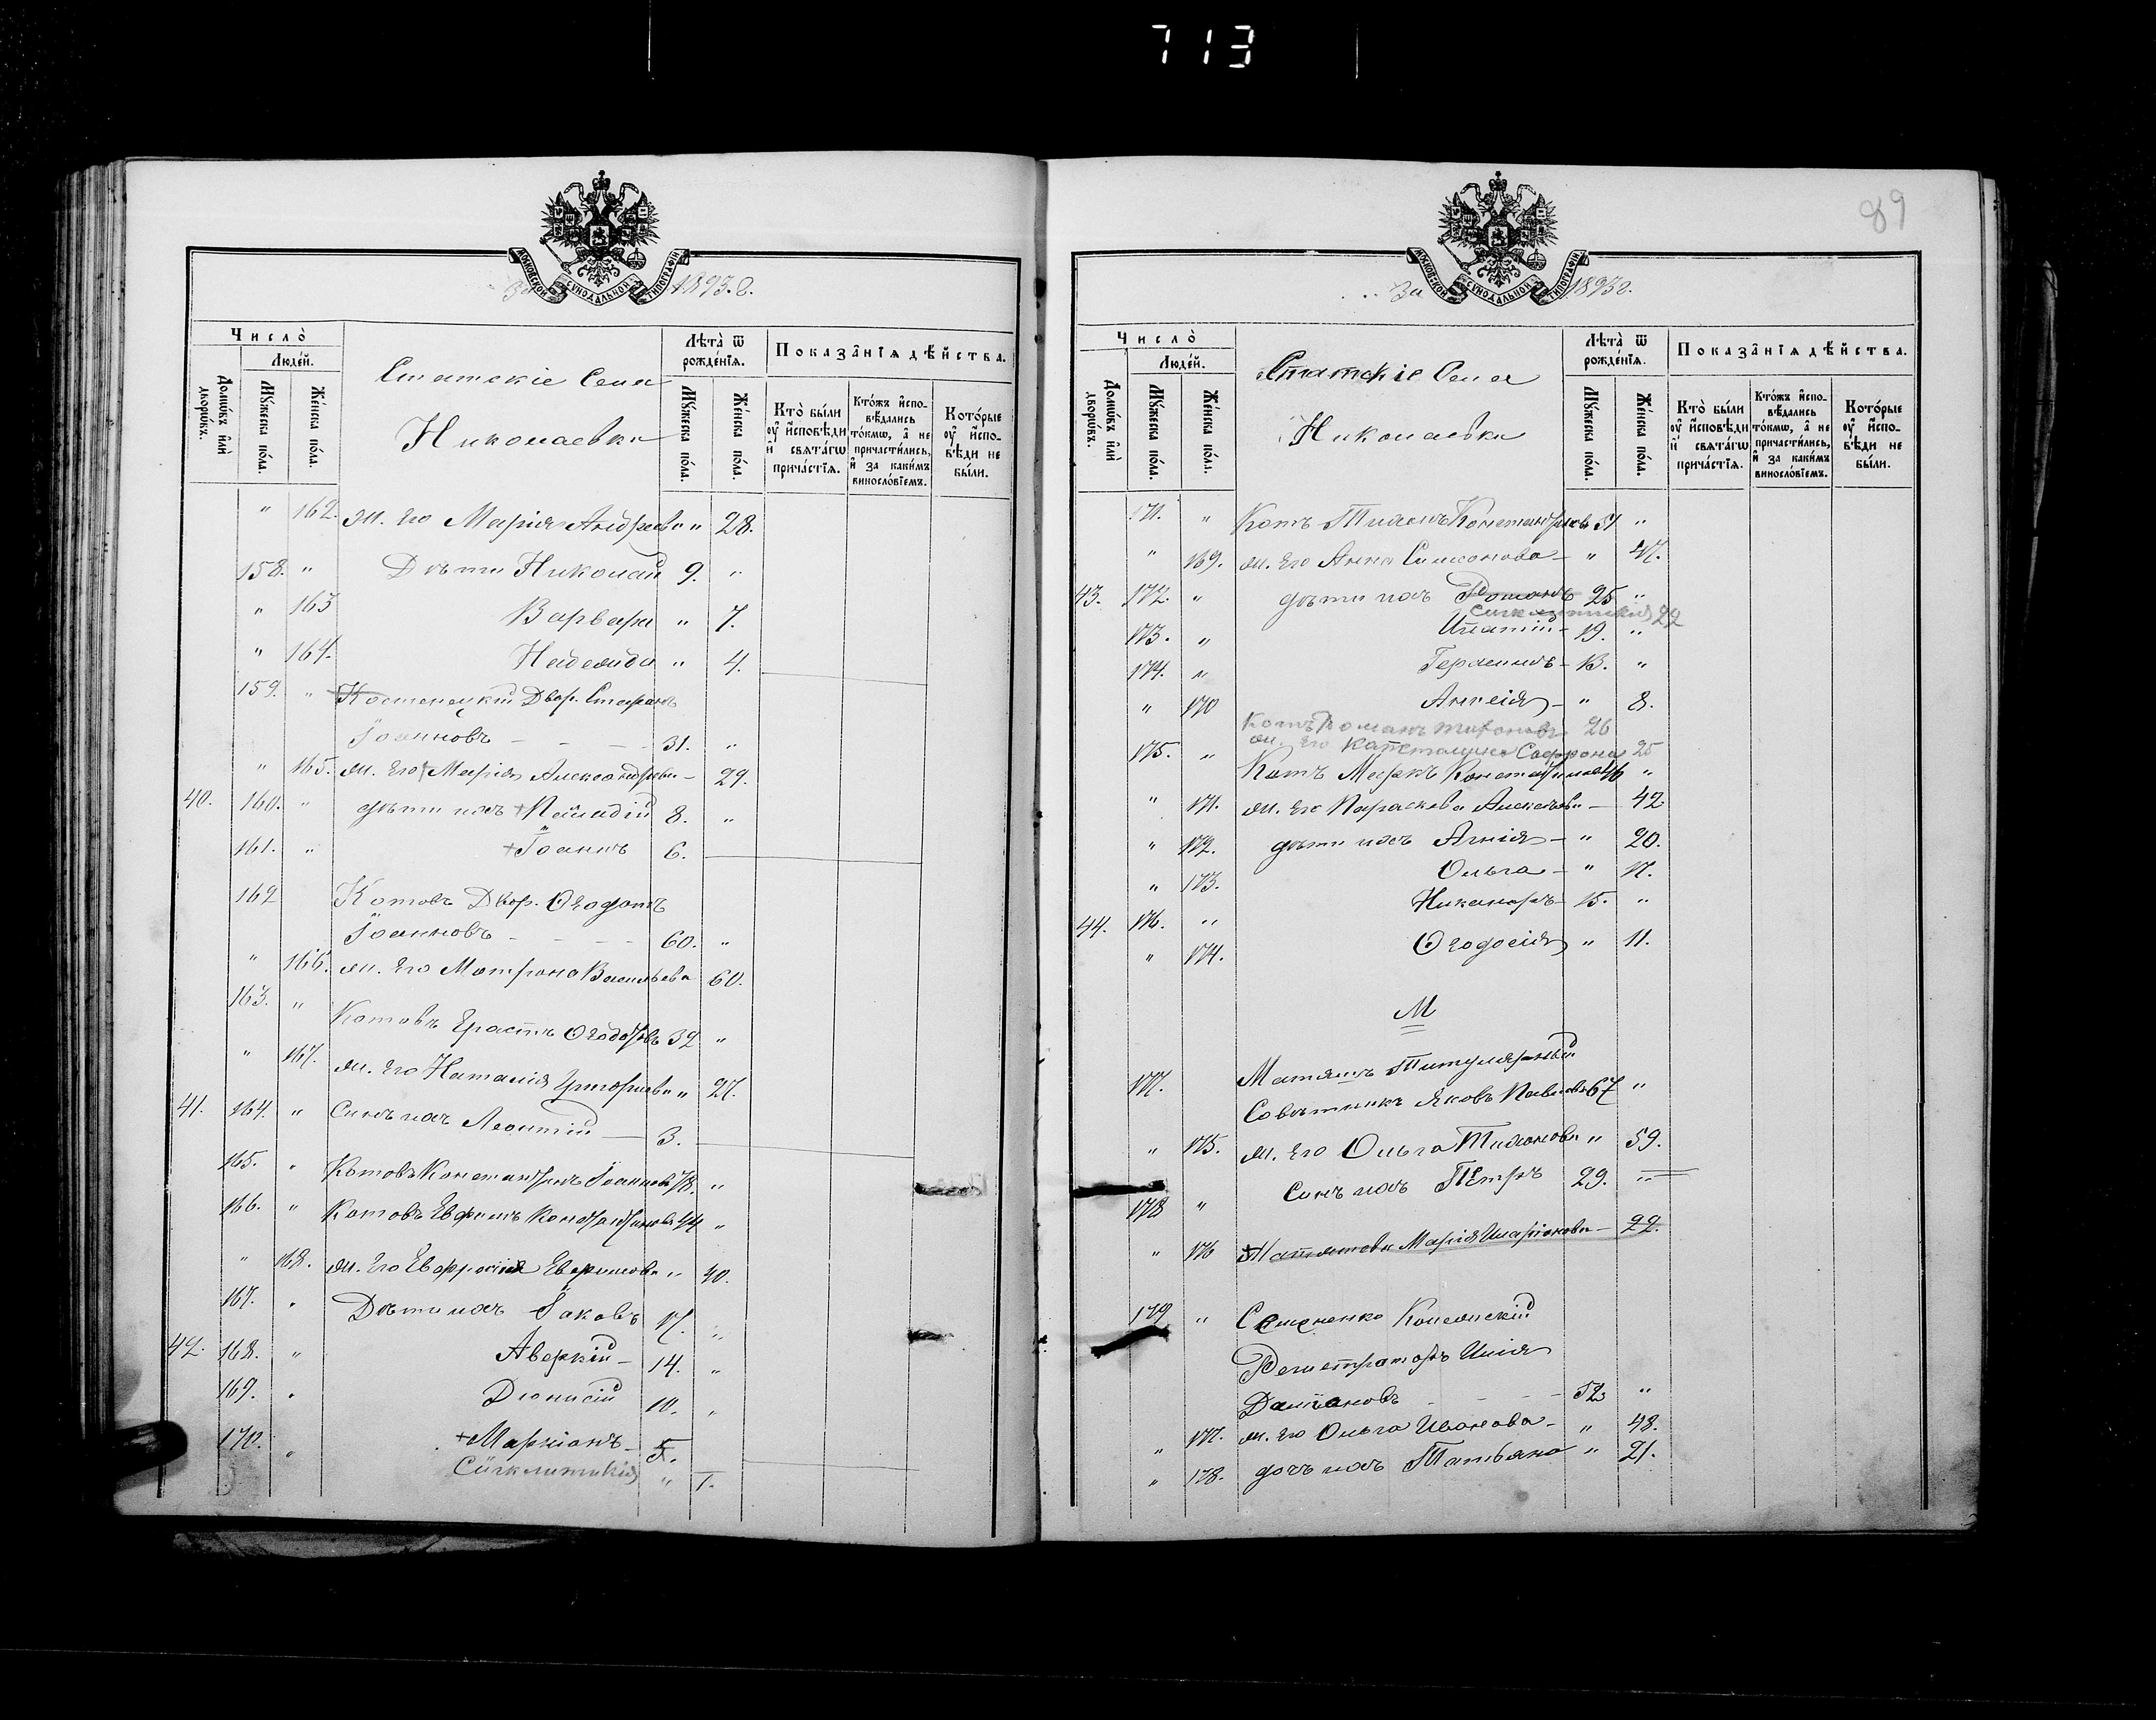 713
МОСКОВСКОЙ СѴНОДАЛЬНОЙ ТИПОГРАФІИ
За 1893 г.
Число̀
Людей.
Домѡвъ и҆лѝ дворѡвъ.
Мꙋжеска пола.
Женска пола.
Статскіе Села
Николаевки
Лѣта̀ ѿ рожденїѧ.
Мꙋжеска пола.
Женска пола.
Показанїѧ дѣйства.
Кто̀ были оу҆ и҆сповѣди и҆ свѧтагѡ причастїѧ.
Ктожъ и҆сповѣдались токмѡ, а҆ не причастились, и҆ за какимъ винословїемъ.
Которые оу҆ и҆сповѣди не были.
" 162. ж. Его Марія Андреева " 28.
158. " Дѣти Николай 9. "
" 163 Варвара " 7.
" 164. Надежда " 4.
159. " Костенецкій Двор. Стефанъ
Іоанновъ 31. "
" 165. ж. Его Марія Александрова 29.
40. 160. " дѣти ихъ 8. "
161. " + Іоаннъ 6.
162 Котовъ Двор. Ѳеодотъ
Іоанновъ 60. "
" 166. ж. Его Матрона Васильева 60.
163. " Котовъ Ерастъ Ѳеодотовъ 32 "
" 167. ж. Его Наталія Григорьева " 27.
41. 164. " Сынъ ихъ Леонтій 3.
165. " Котовъ Константинъ Іоанновъ 78. "
166. " Котовъ Евфимъ Константиновъ 44 "
" 168. ж. Его Евфросинія Ефимова " 40.
167. " Дѣти ихъ Іаковъ 17. "
42. 168. " Аверкій 14. "
169. " Діонисій 10. "
170. " + Маркіанъ 5.
Сигклитикія " 1.
89
МОСКОВСКОЙ СѴНОДАЛЬНОЙ ТИПОГРАФІИ
За 1893 г.
Число̀
Людей.
Домѡвъ и҆лѝ дворѡвъ.
Мꙋжеска пола.
Женска пола.
Статскіе Села
Николаевки
Лѣта̀ ѿ рожденїѧ.
Мꙋжеска пола.
Женска пола.
Показанїѧ дѣйства.
Кто̀ были оу҆ и҆сповѣди и҆ свѧтагѡ причастїѧ.
Ктожъ и҆сповѣдались токмѡ, а҆ не причастились, и҆ за какимъ винословїемъ.
Которые оу҆ и҆сповѣди не были.
171. " Котъ Тихонъ Константиновъ 51 "
" 169. ж. Его Анна Симонова " 47.
43. 172. " дѣти ихъ Романъ 25 "
Сигклитикія 22
173. " Игнатій 19. "
174. " Германъ 13. "
" 170 8.
Котъ Романъ Тихоновъ 26
ж. Его Капетолина Сафронова 25
175. " Котъ Маркъ Константиновъ 46 "
" 171. ж. Его Параскева Алексѣева 42
" 172. дѣти ихъ " 20.
" 173. Ольга " 17.
44. 176. " Никаноръ 15. "
" 174. Ѳеодосія " 11.
М
177. Титулярный
Совѣтникъ Яковъ Павловъ 67 "
" 175. ж. Его Ольга Тихонова " 59.
178 " Сынъ ихъ Петръ 29. "
" 176 Марія Иларіонова 22.
179 " Семененко Колежскій
Регистраторъ Илія
Даміановъ 52 "
" 177. ж. Его Ольга Иванова " 48.
" 178. дочь ихъ Татьяна " 21.